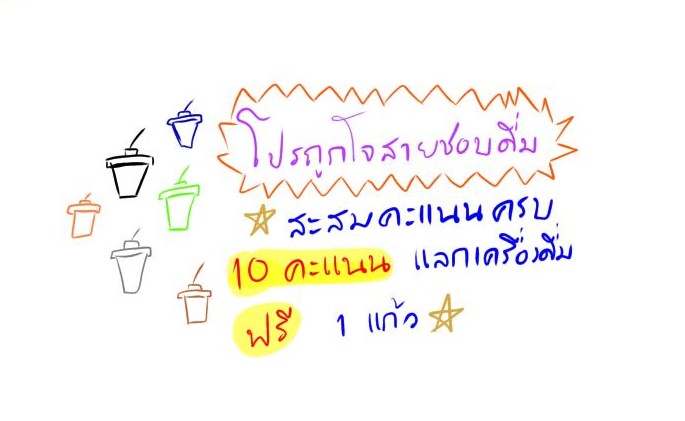 โปรถูกใจสายชอบดื่ม
สะสมคะแนนครบ
10 คะแนน แลกเครื่องดื่ม
ฟรี 1 แก้ว